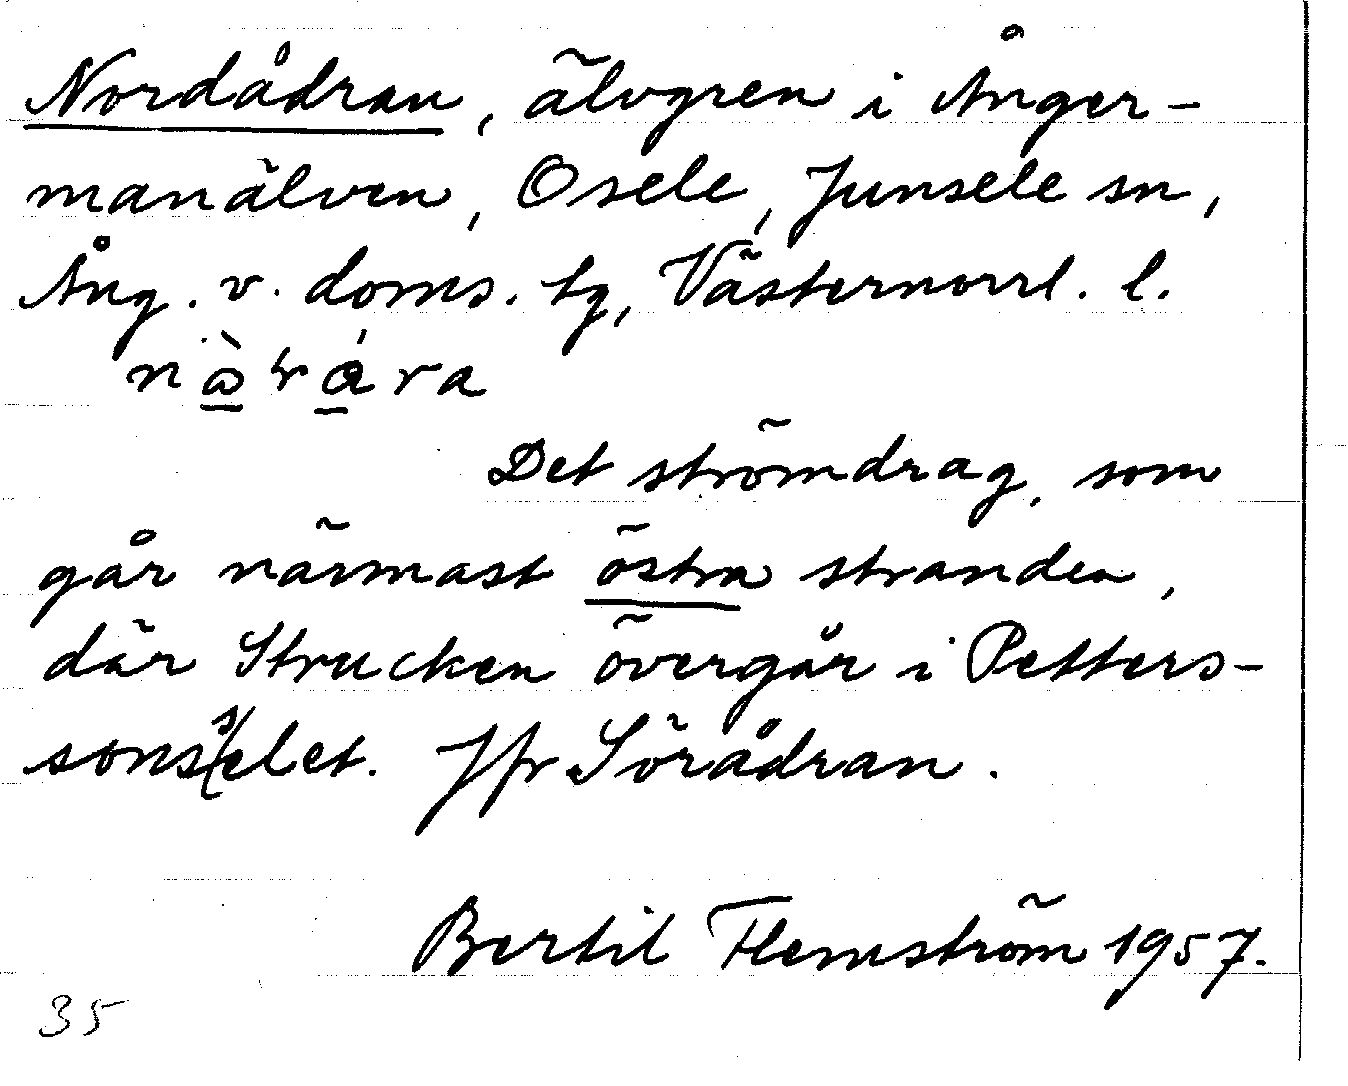 Nordådran, älvgren i Ånger-
manälven, Osele, Junsele sn,
Ång. v. doms. tg, Västernorrl. l.
Det strömdrag, som
går närmast östra stranden,
där Strucken övergår i Petters-
sonsselet. Jfr Sörådran.
Bertil Flemström 1957.
35